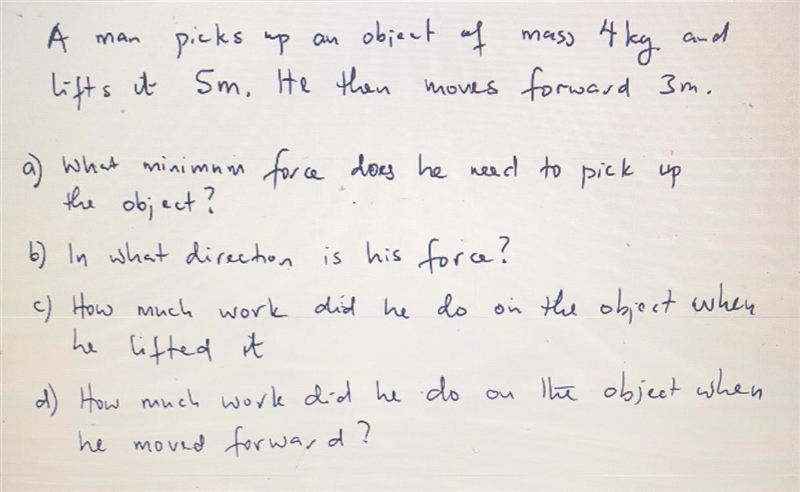 A man picks up an object of mass 4kg and
lifts it 5m. He then moves forward 3m.
a) What minimum force does he need to pick up
the object?
b) In what direction is his force?
c) How much work did he do on the object when
he lifted it
d) How much work did he do on the object when
he moved forward?